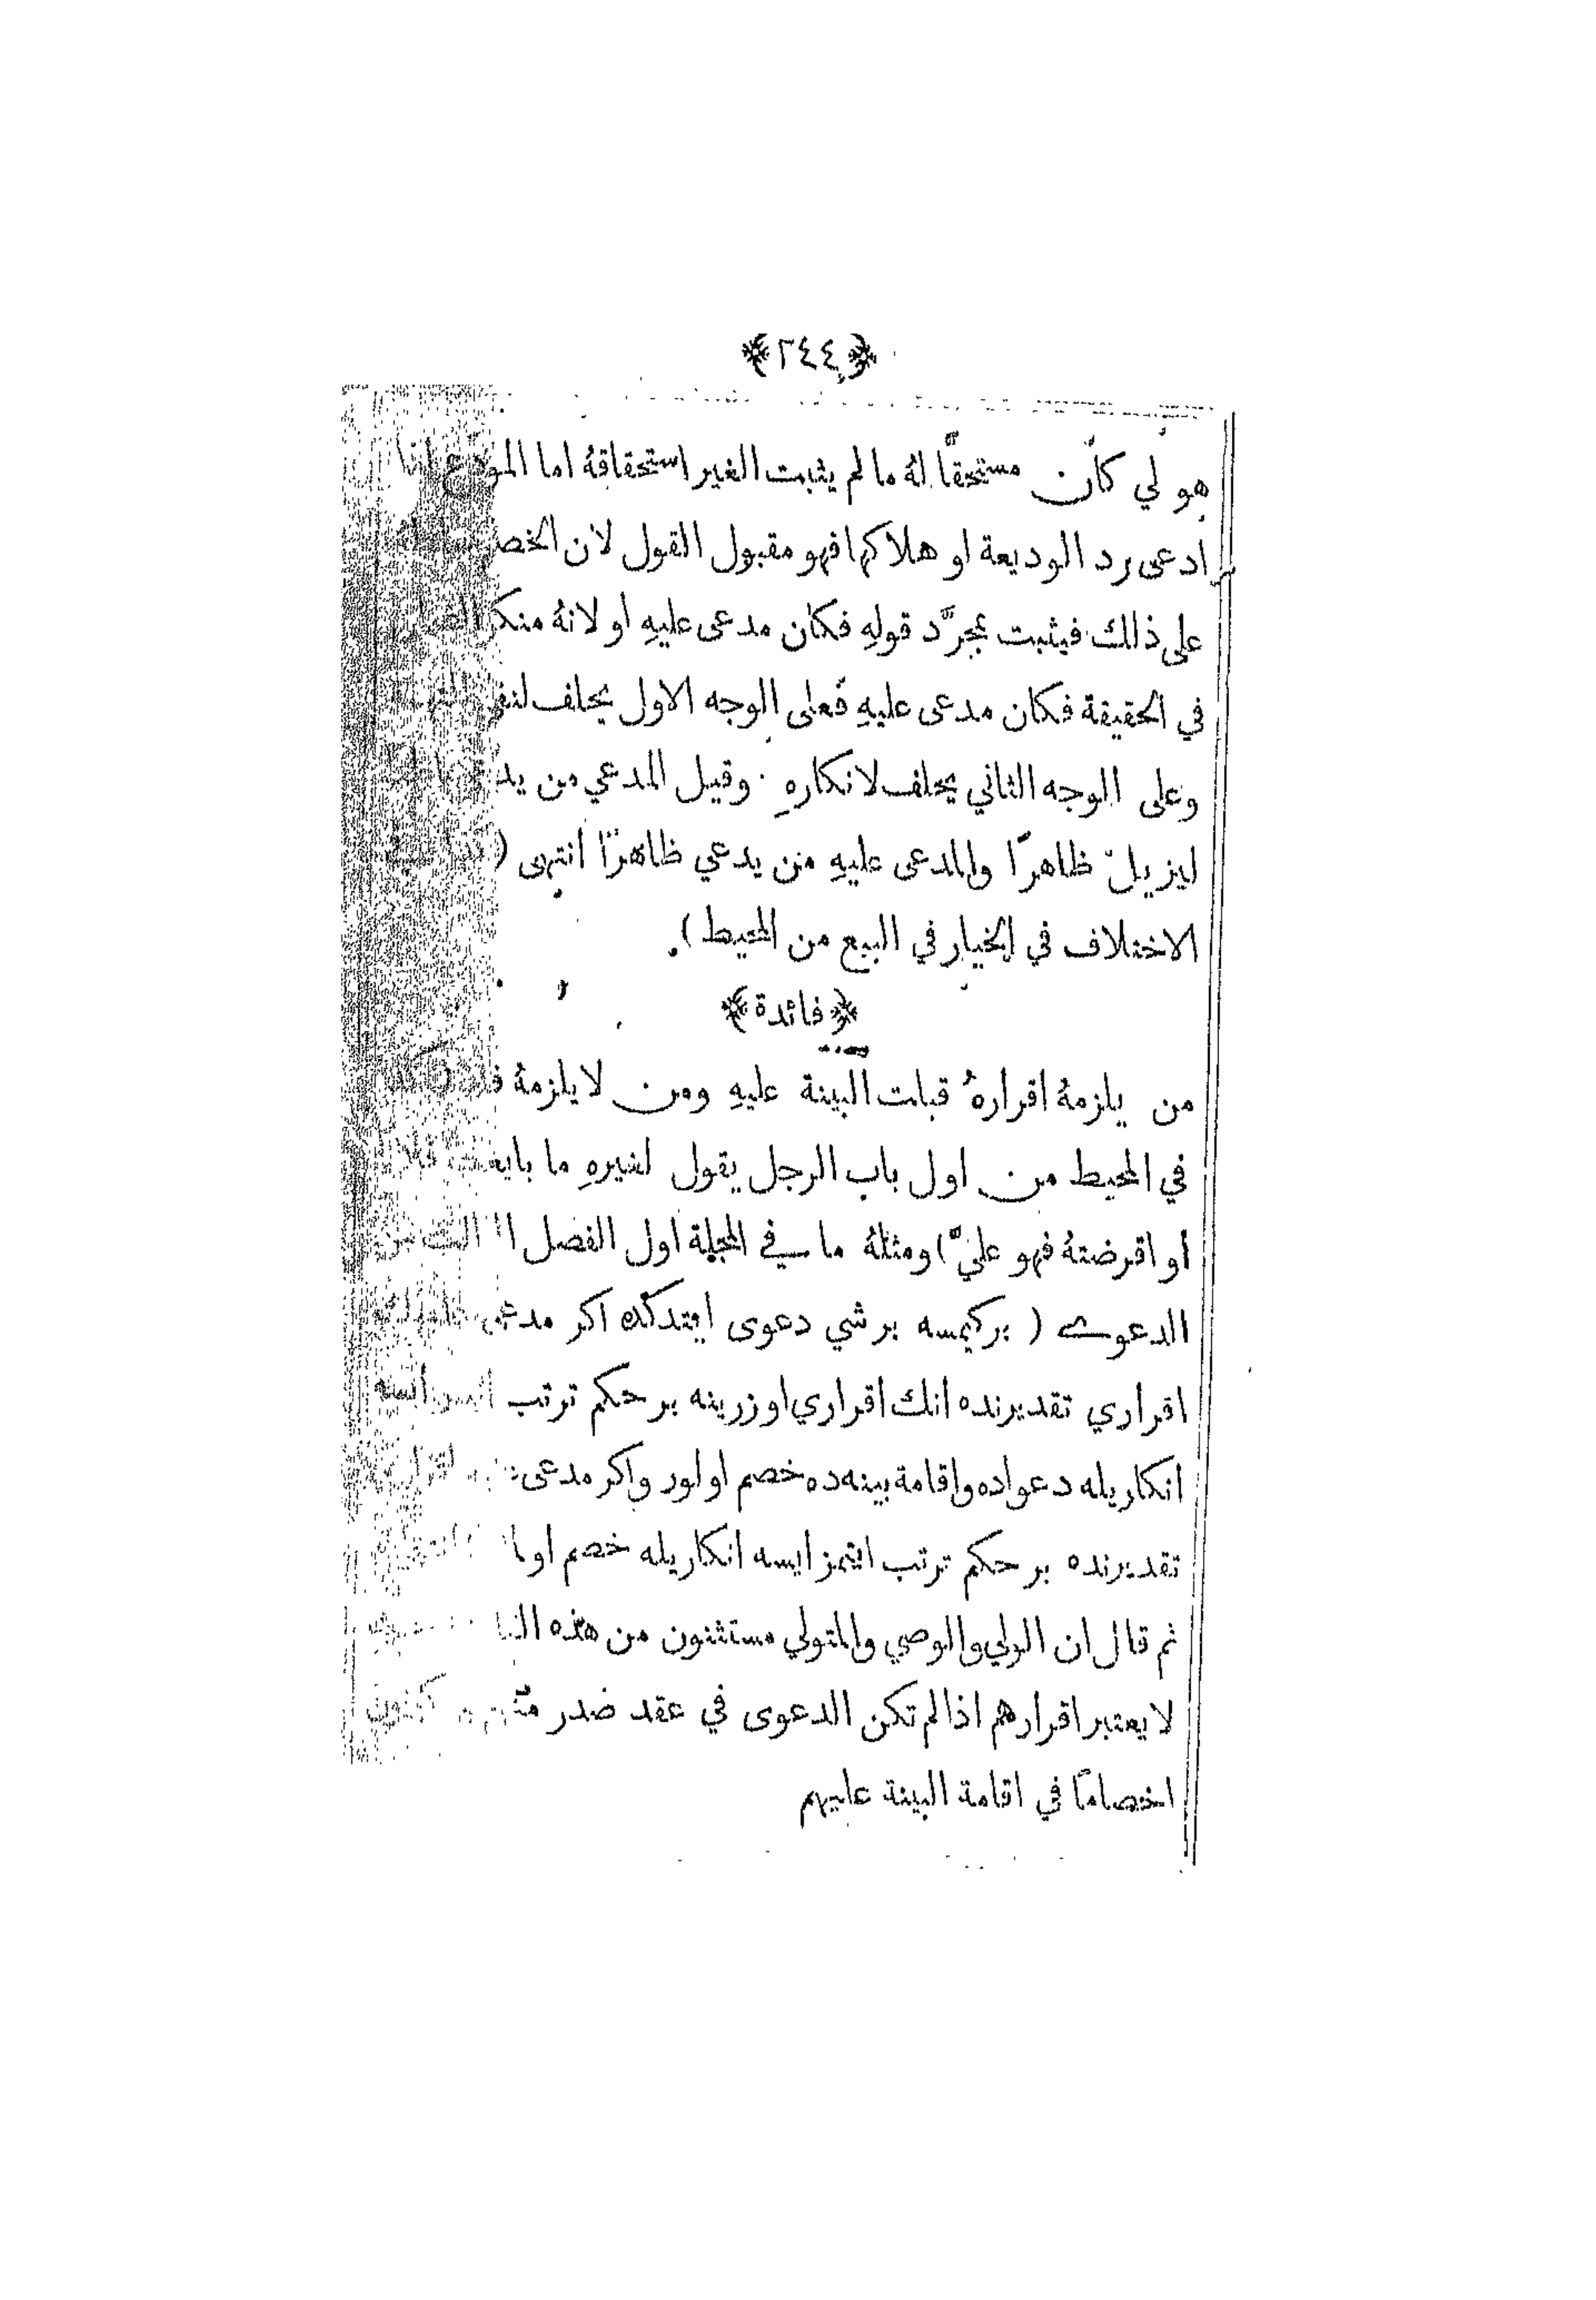 ﴿٢٤٤﴾
هو لي كان مستحقًّا لهُ ما لم يثبت الغير استحقاقهُ اما المودع اذا
ادعى رد الوديعة او هلاكها فهو مقبول القول لان الخصم
على ذلك فيثبت بمجرَّد قولهِ فكان مدعى عليهِ او لانهُ منكر
في الحقيقة فكان مدعى عليهِ فعلى الوجه الاول يحلف لنفي
وعلى الوجه الثاني يحلف لانكارهِ . وقيل المدعي من
ليزيل ظاهرًا والمدعى عليهِ من يدعي ظاهرًا انتهى (
الاختلاف في الخيار في البيع من المحيط).
﴿فائدة﴾
من يلزمهُ اقرارهُ قبلت البينة عليهِ ومن لا يلزمهُ
في المحيط من اول باب الرجل يقول لغيرهِ ما بايعت
او اقرضتهُ فهو عليَّ) ومثلهُ ما في المجلة اول الفصل
الدعوى ( بركيمسه برشي دعوى ايتدكده اكر مدعى
اقراري تقديرنده انك اقراري اوزرينه بر حكم ترتب
انكاريله دعواده واقامة بينه‌ده خصم اولور واكر مدعى
تقديرنده بر حكم ترتب ايتمز ايسه انكاريله خصم
ثم قال ان الولي والوصي والمتولي مستثنون من هذه
لا يعتبر اقرارهم اذا لم تكن الدعوى في عقد صدر
اخصامًا في اقامة البينة عليهم